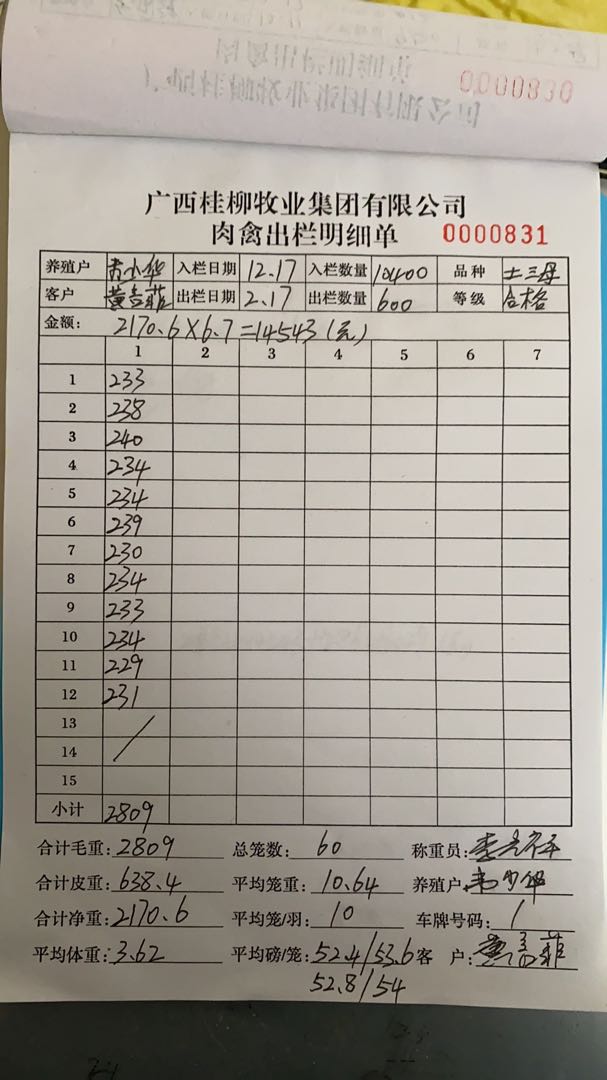 0000830
广西桂柳牧业集团有限公司
肉禽出栏明细单 0000831
养殖户 韦少华 入栏日期 12.17 入栏数量 10400 品种 土三母
客户 出栏日期 2.17 出栏数量 600 等级 合格
金额: 2170.6×6.7=14543(元)
1 2 3 4 5 6 7
1 233
2 238
3 240
4 234
5 234
6 239
7 230
8 234
9 233
10 234
11 229
12 231
13
14
15
小计 2809
合计毛重: 2809 总笼数: 60 称重员:
合计皮重: 638.4 平均笼重: 10.64 养殖户: 韦少华
合计净重: 2170.6 平均笼/羽: 10 车牌号码: /
平均体重: 3.62 平均磅/笼: 52.4/53.6 客 户:
52.8/54